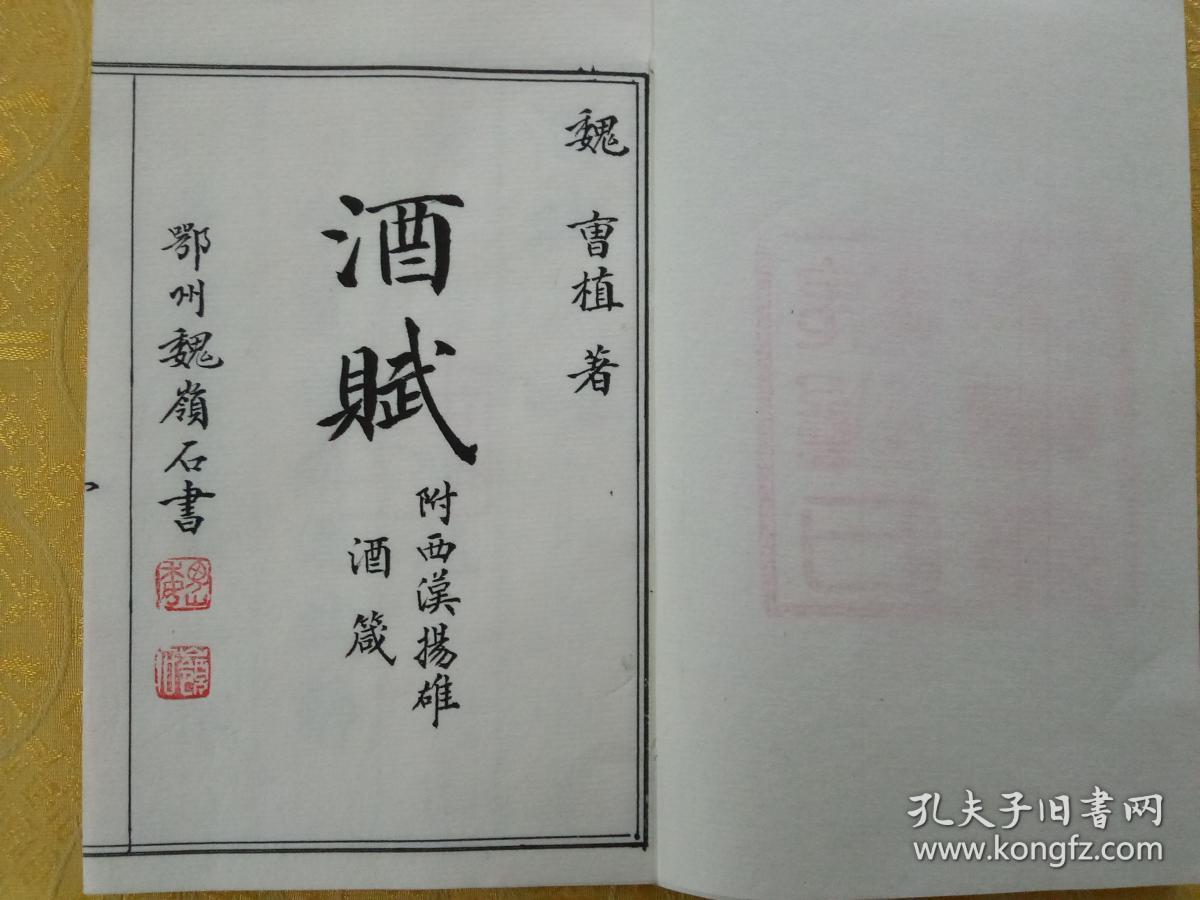 魏 曺植 著
酒賦
附西漢揚雄
酒箴
鄂州魏嶺石書
孔夫子旧書网
www.kongfz.com